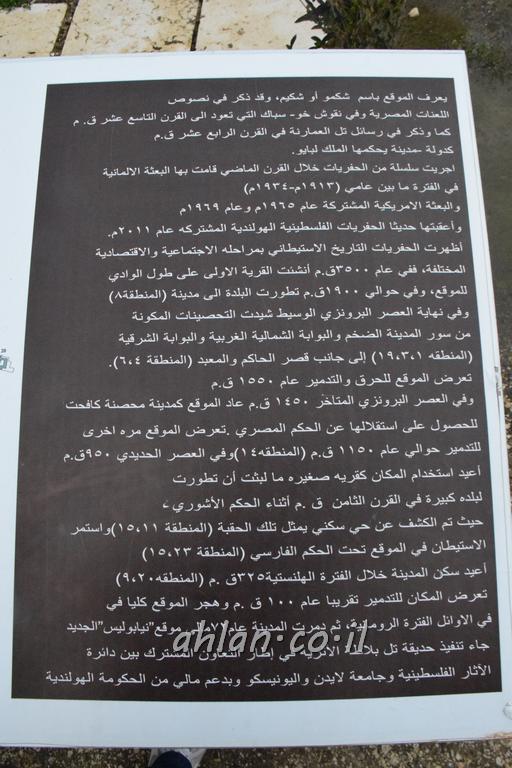 يعرف الموقع باسم شكمو أو شكيم، وقد ذكر في نصوص
اللعنات المصرية وفي نقوش خو- سباك التي تعود الى القرن التاسع عشر ق. م
كما وذكر في رسائل تل العمارنة في القرن الرابع عشر ق.م
كدولة -مدينة يحكمها الملك لبايو.
اجريت سلسلة من الحفريات خلال القرن الماضي قامت بها البعثة الالمانية
في الفترة ما بين عامي (١٩١٣م-١٩٣٤م)
والبعثة الامريكية المشتركة عام ١٩٦٥م وعام ١٩٦٩م
وأعقبتها حديثا الحفريات الفلسطينية الهولندية المشتركه عام ٢٠١١م.
أظهرت الحفريات التاريخ الاستيطاني بمراحله الاجتماعية والاقتصادية
المختلفة، ففي عام ٣٥٠٠ق.م أنشئت القرية الاولى على طول الوادي
للموقع، وفي حوالي ١٩٠٠ق.م تطورت البلدة الى مدينة (المنطقة٨)
وفي نهاية العصر البرونزي الوسيط شيدت التحصينات المكونة
من سور المدينة الضخم والبوابة الشمالية الغربية والبوابة الشرقية
(المنطقه ١٩،٣،١) إلى جانب قصر الحاكم والمعبد (المنطقة ٦،٤).
تعرض الموقع للحرق والتدمير عام ١٥٥٠ ق.م
وفي العصر البرونزي المتاخر ١٤٥٠ ق.م عاد الموقع كمدينة محصنة كافحت
للحصول على استقلالها عن الحكم المصري .تعرض الموقع مره اخرى
للتدمير حوالي عام ١١٥٠ ق.م (المنطقة١٤)وفي العصر الحديدي ٩٥٠ق.م
أعيد استخدام المكان كقريه صغيره ما لبثت أن تطورت
لبلده كبيرة في القرن الثامن ق .م أثناء الحكم الأشوري،
حيث تم الكشف عن حي سكني يمثل تلك الحقبة (المنطقة ١٥،١١)واستمر
الاستيطان في الموقع تحت الحكم الفارسي (المنطقة ١٥،٢٣)
أعيد سكن المدينة خلال الفترة الهلنستية٣٢٥ق .م (المنطقه٩،٢٠)
تعرض المكان للتدمير تقريبا عام ١٠٠ ق .م وهجر الموقع كليا في
في الاوائل الفترة الرومانية، ثم دمرت المدينة عام موقع"نيابوليس"الجديد
جاء تنفيذ حديقة تل الاثرية في إطار التعاون المشترك بين دائرة
الآثار الفلسطينية وجامعة لايدن واليونيسكو وبدعم مالي من الحكومة الهولندية
ahlan.co.il